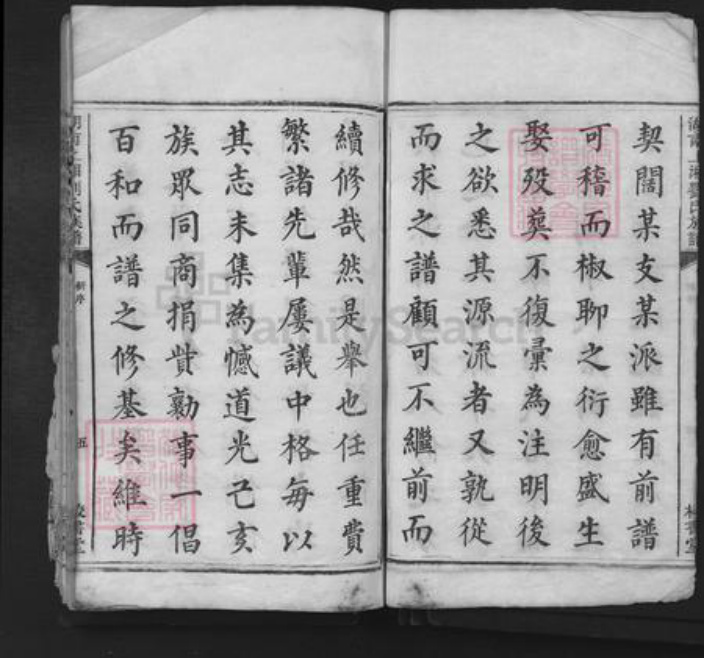 契闊某支某派雖有前譜
可稽而椒聊之衍愈盛生
娶歿葬不復彙為注明後
之欲悉其源流者又孰從
而求之譜顧可不繼前而
續修哉然是舉也任重費
繁諸先輩屢議中格每以
其志未集為憾道光己亥
族眾同商捐貲勷事一倡
百和而譜之修基矣維時
新序
五
FamilySearch